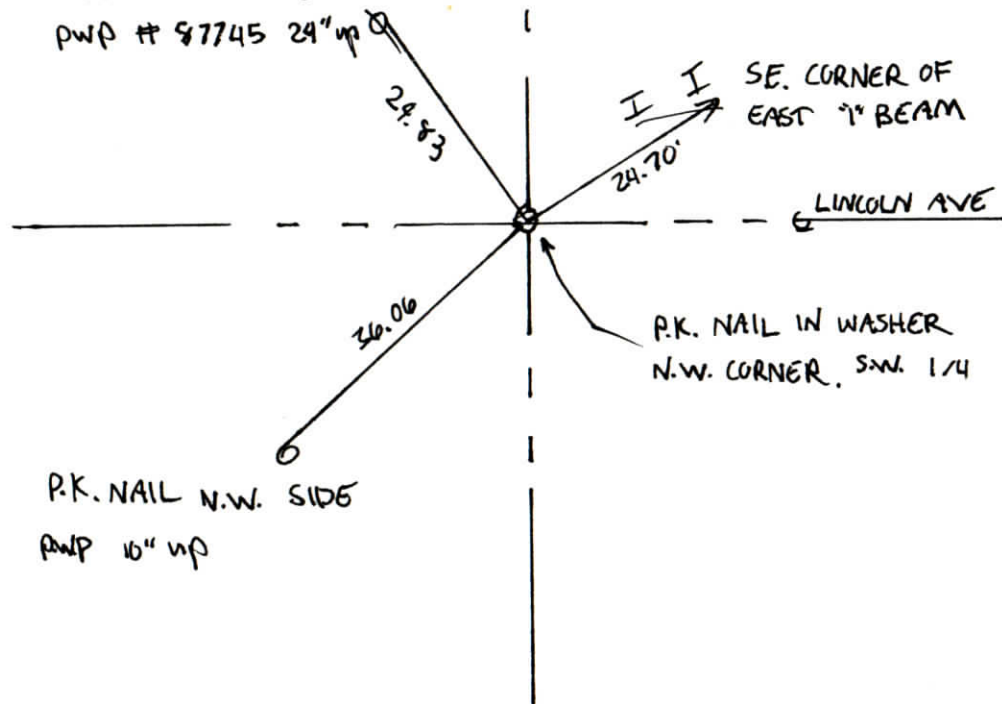 PWP # 87745 24" up
24.83
I I
SE. CORNER OF
EAST "I" BEAM
24.70'
LINCOLN AVE
36.06
P.K. NAIL IN WASHER
N.W. CORNER. S.W. 1/4
P.K. NAIL N.W. SIDE
PWP 10" up